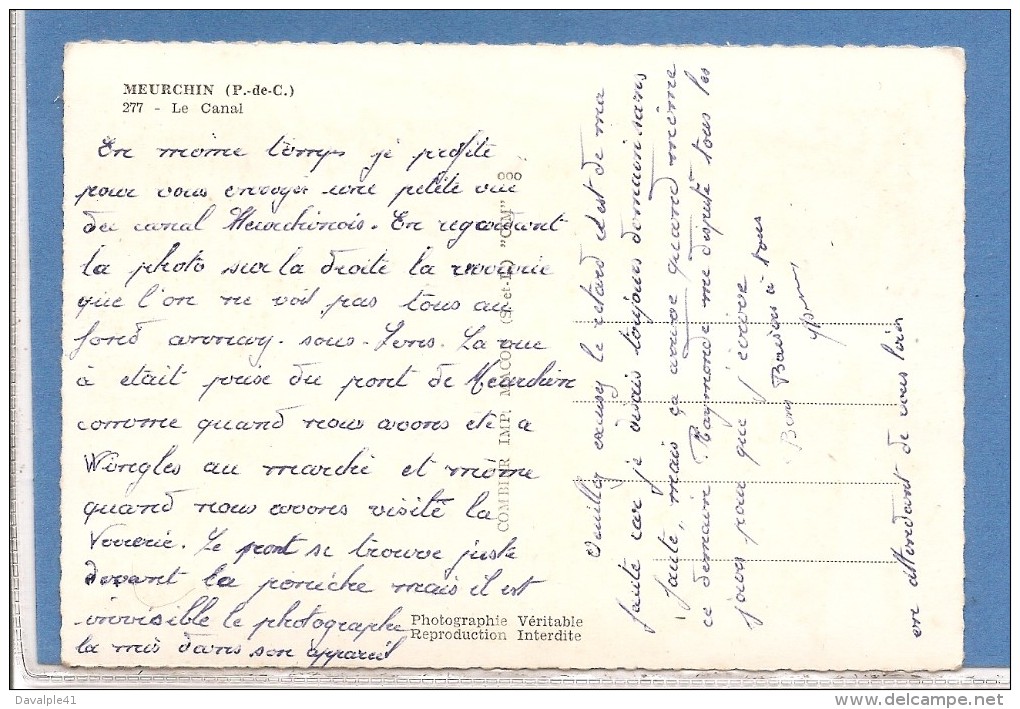 MEURCHIN (P.-de-C.)
277 - Le Canal
En même temps je profite
pour vous envoyer une petite vue
du canal Meurchinois. En regardant
la photo sur la droite la verrerie
que l'on ne voit pas tous au
fond annay-sous-Lens. La vue
à était prise du pont de Meurchin
comme quand nous avons été a
Wingles au marché et même
quand nous avons visité la
Verrerie. Le pont se trouve juste
devant la péniche mais il est
invisible le photographe
la mis dans son appareil
COMBIER IMP. MACON (S.-et-L.) "CIM"
Photographie Véritable
Reproduction Interdite
Veuiller excusez le retard c'est de ma
faute car je disais toujours demain sans
faute, mais ça arrive quand même
ce demaine Raymonde me dispute tous les
jours pour que j'écrive
Bons Baisers à tous
en attendant de vous voir
Davalple41